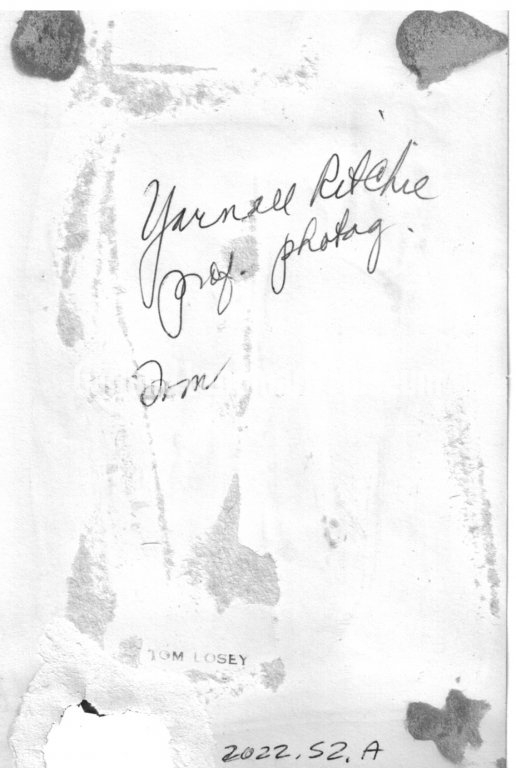 Yarnall Ritchie
prof. photog.
TOM LOSEY
2022.52.A